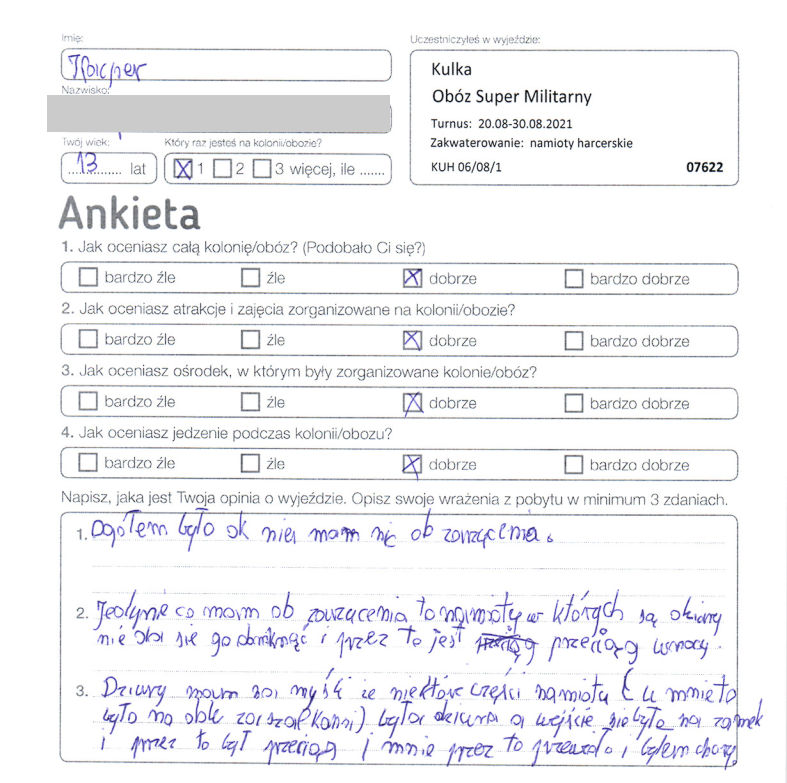 Imię:
Kacper
Uczestniczyłeś w wyjeździe:
Kulka
Obóz Super Militarny
Turnus: 20.08-30.08.2021
Zakwaterowanie: namioty harcerskie
KUH 06/08/1 07622
Nazwisko:
Twój wiek: Który raz jesteś na kolonii/obozie?
13 lat 1 2 3 więcej, ile .......
Ankieta
1. Jak oceniasz całą kolonię/obóz? (Podobało Ci się?)
bardzo źle źle dobrze bardzo dobrze
2. Jak oceniasz atrakcje i zajęcia zorganizowane na kolonii/obozie?
bardzo źle źle dobrze bardzo dobrze
3. Jak oceniasz ośrodek, w którym były zorganizowane kolonie/obóz?
bardzo źle źle dobrze bardzo dobrze
4. Jak oceniasz jedzenie podczas kolonii/obozu?
bardzo źle źle dobrze bardzo dobrze
Napisz, jaka jest Twoja opinia o wyjeździe. Opisz swoje wrażenia z pobytu w minimum 3 zdaniach.
1. Ogołem było ok mam nic ob zarzącenia.
2. Jedyne co mam ob zarzącenia to namioty w których są dziury
nie da sie go domknąć i przez to jest przeciąg wnocy.
3. Dziury mam na myśli że niektóre części namiotu (u mnie to
było na obk zaszafkami) była dziura a wejście nie było na zamek
i przez to był przeciąg i mnie przez to przewiało i byłem chory